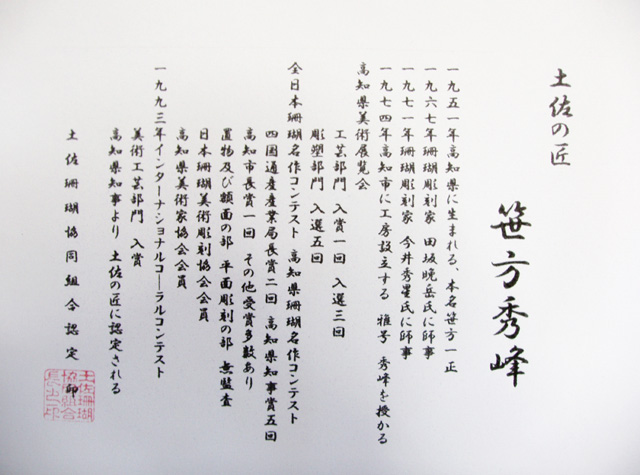 土佐の匠
笹方秀峰
一九五一年高知県に生まれる、本名笹方一正
一九六七年珊瑚彫刻家 田坂晩岳氏に師事
一九七一年珊瑚彫刻家 今井秀星氏に師事
一九七四年高知市に工房設立する 雅号 秀峰を授かる
高知県美術展覧会
工芸部門 入賞一回 入選三回
彫塑部門 入選五回
全日本珊瑚名作コンテスト 高知県珊瑚名作コンテスト
四国通産産業局長賞二回 高知県知事賞五回
高知市長賞一回 その他受賞多数あり
置物及び額面の部 平面彫刻の部 無監査
日本珊瑚美術彫刻協会会員
高知県美術家協会会員
一九九三年インターナショナルコーラルコンテスト
美術工芸部門 入賞
高知県知事より 土佐の匠に認定される
土佐珊瑚協同組合認定 印
土佐珊瑚
協同組合